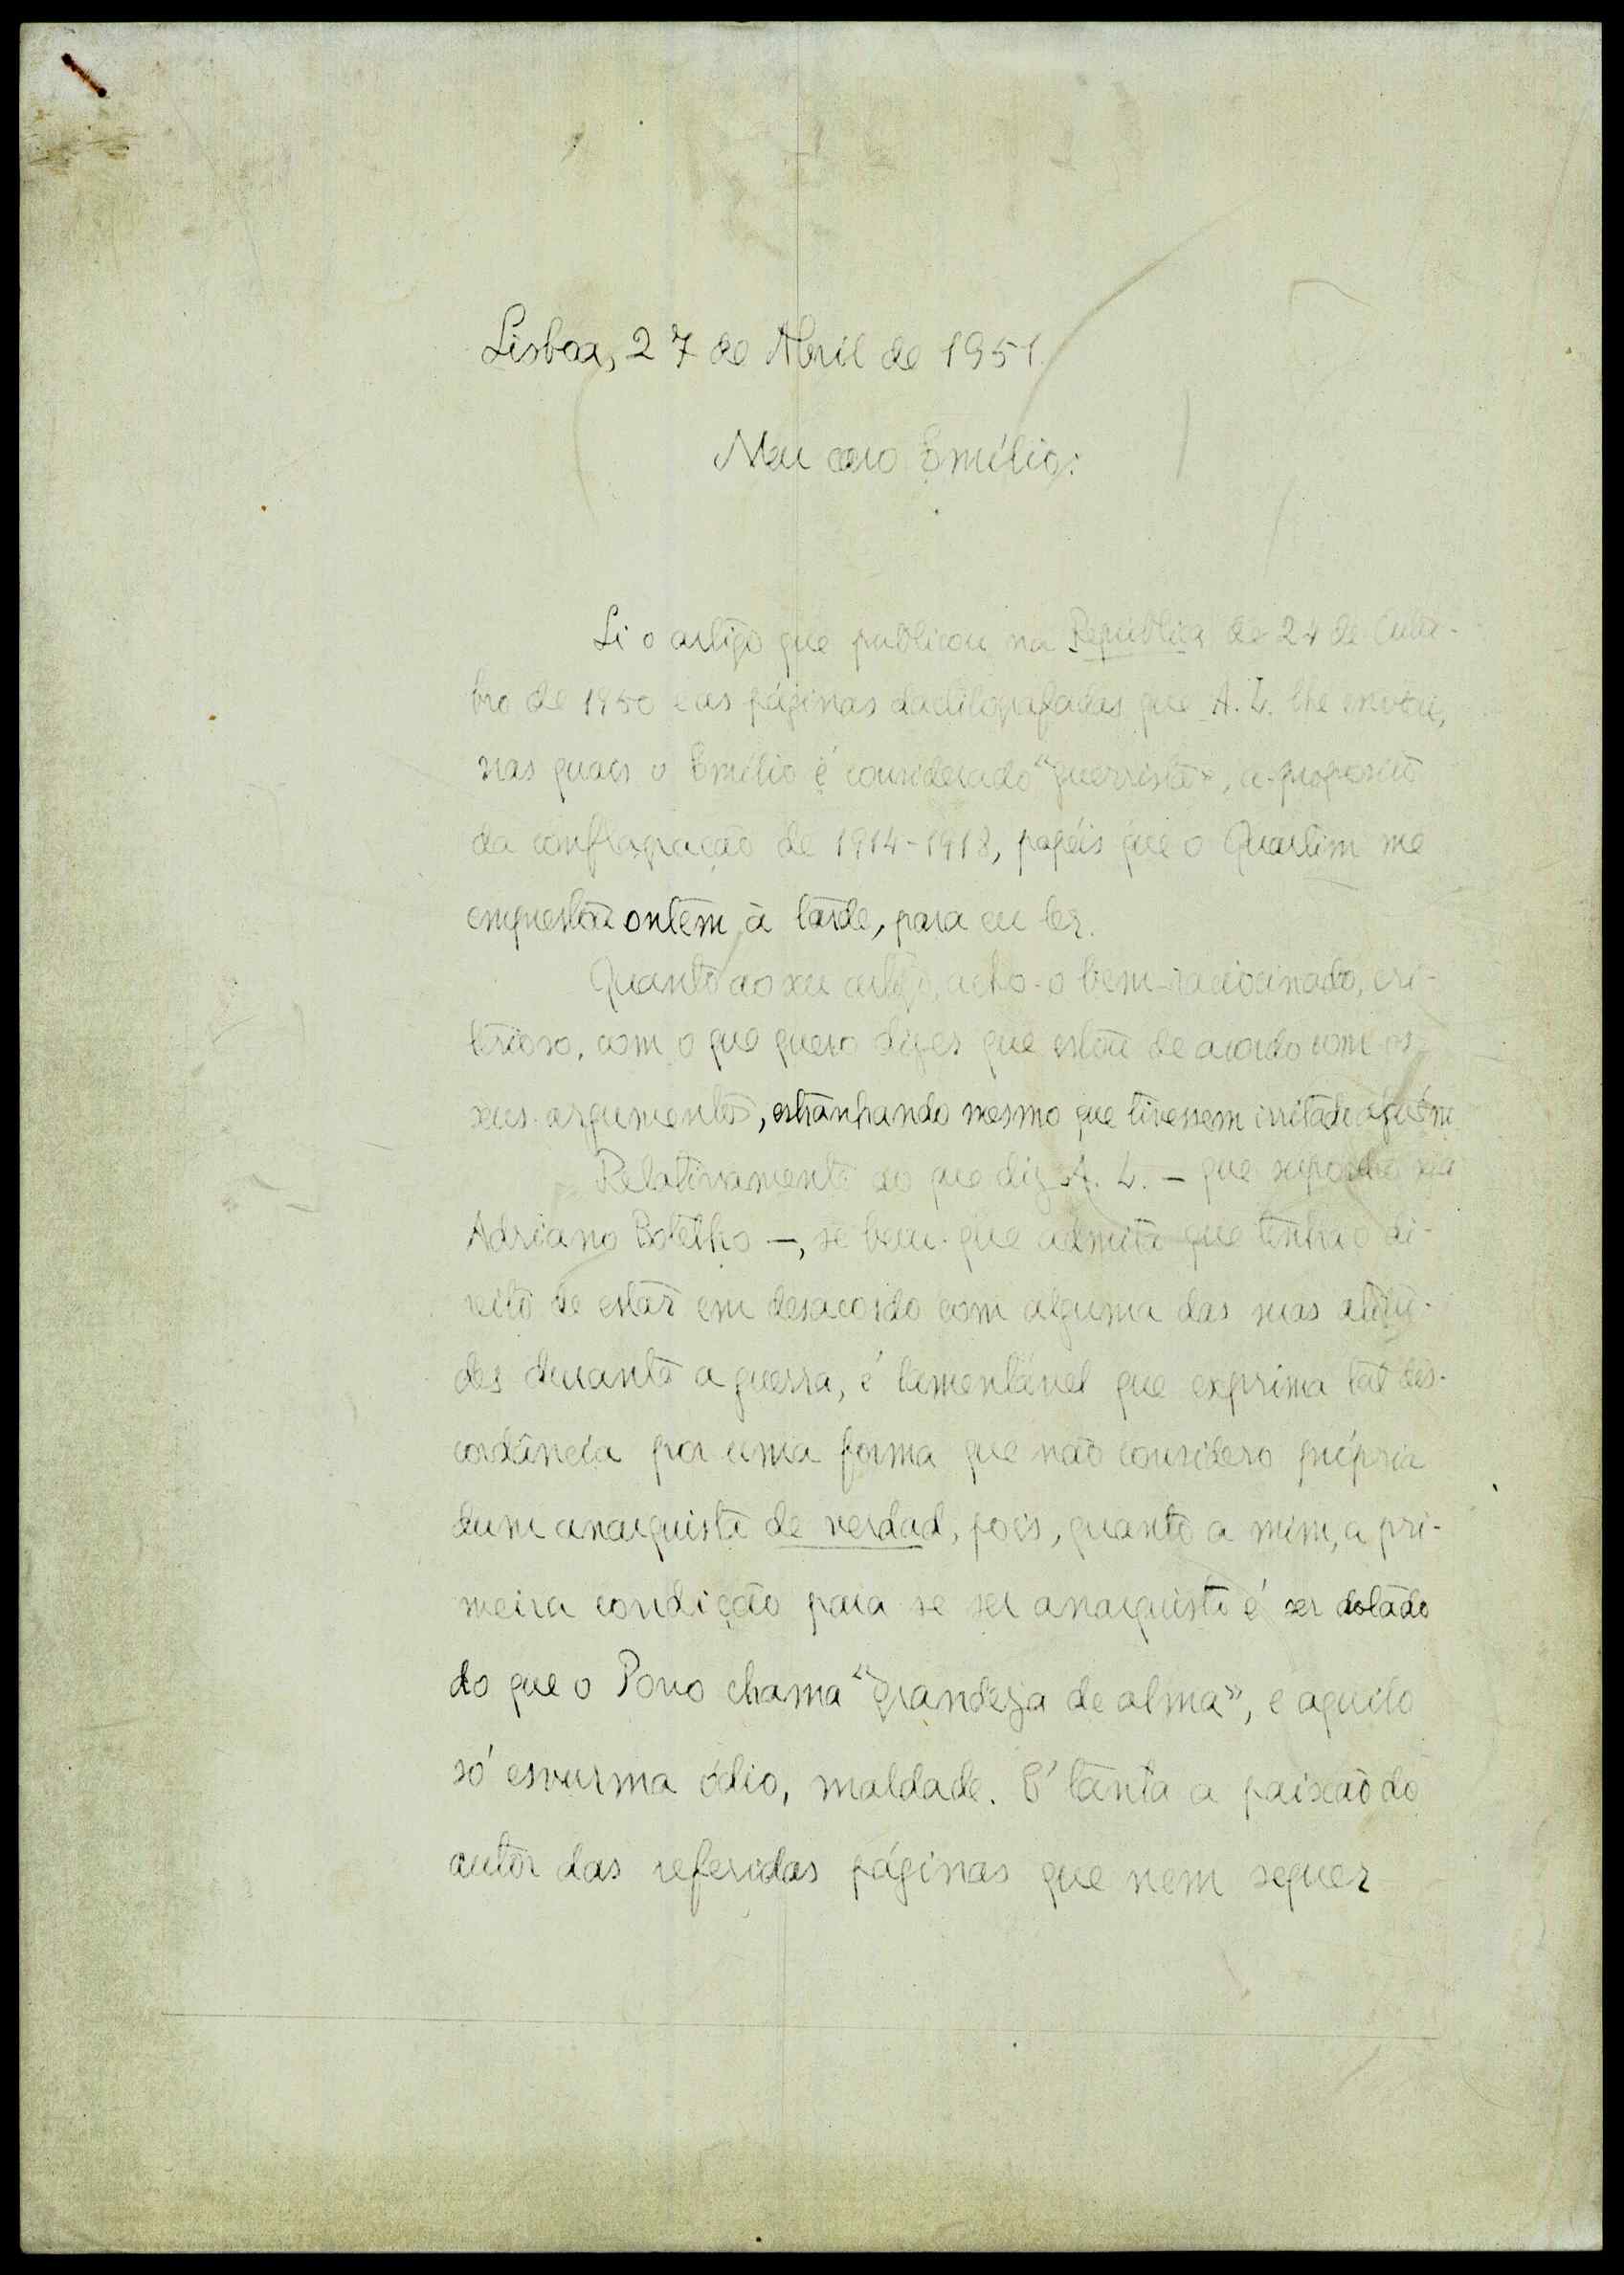 Lisboa, 27 de Abril de 1951.
Meu caro Emílio:
Li o artigo que publicou na República de 24 de Outu-
bro de 1950 e as páginas dactilografadas que A. L. lhe enviou,
nas quais o Emílio é considerado "guerrista", a-propósito
da conflagração de 1914-1918, papéis que o Quartim me
emprestou ontem à tarde, para eu ler.
Quanto ao seu artigo, acho-o bem raciocinado, cri-
terioso, com o que quero dizer que estou de acordo com os
seus argumentos, estranhando mesmo que tivessem irritado alguém.
Relativamente ao que diz A. L. — que suponho ser
Adriano Botelho —, se bem que admita que tenha o di-
reito de estar em desacordo com alguma das suas atitu-
des durante a guerra, é lamentável que exprima tal dis-
cordância por uma forma que não considero própria
dum anarquista de verdad, pois, quanto a mim, a pri-
meira condição para se ser anarquista é ser dotado
do que o Povo chama "grandeza de alma", e aquilo
só esvurma ódio, maldade. É tanta a paixão do
autor das referidas páginas que nem sequer